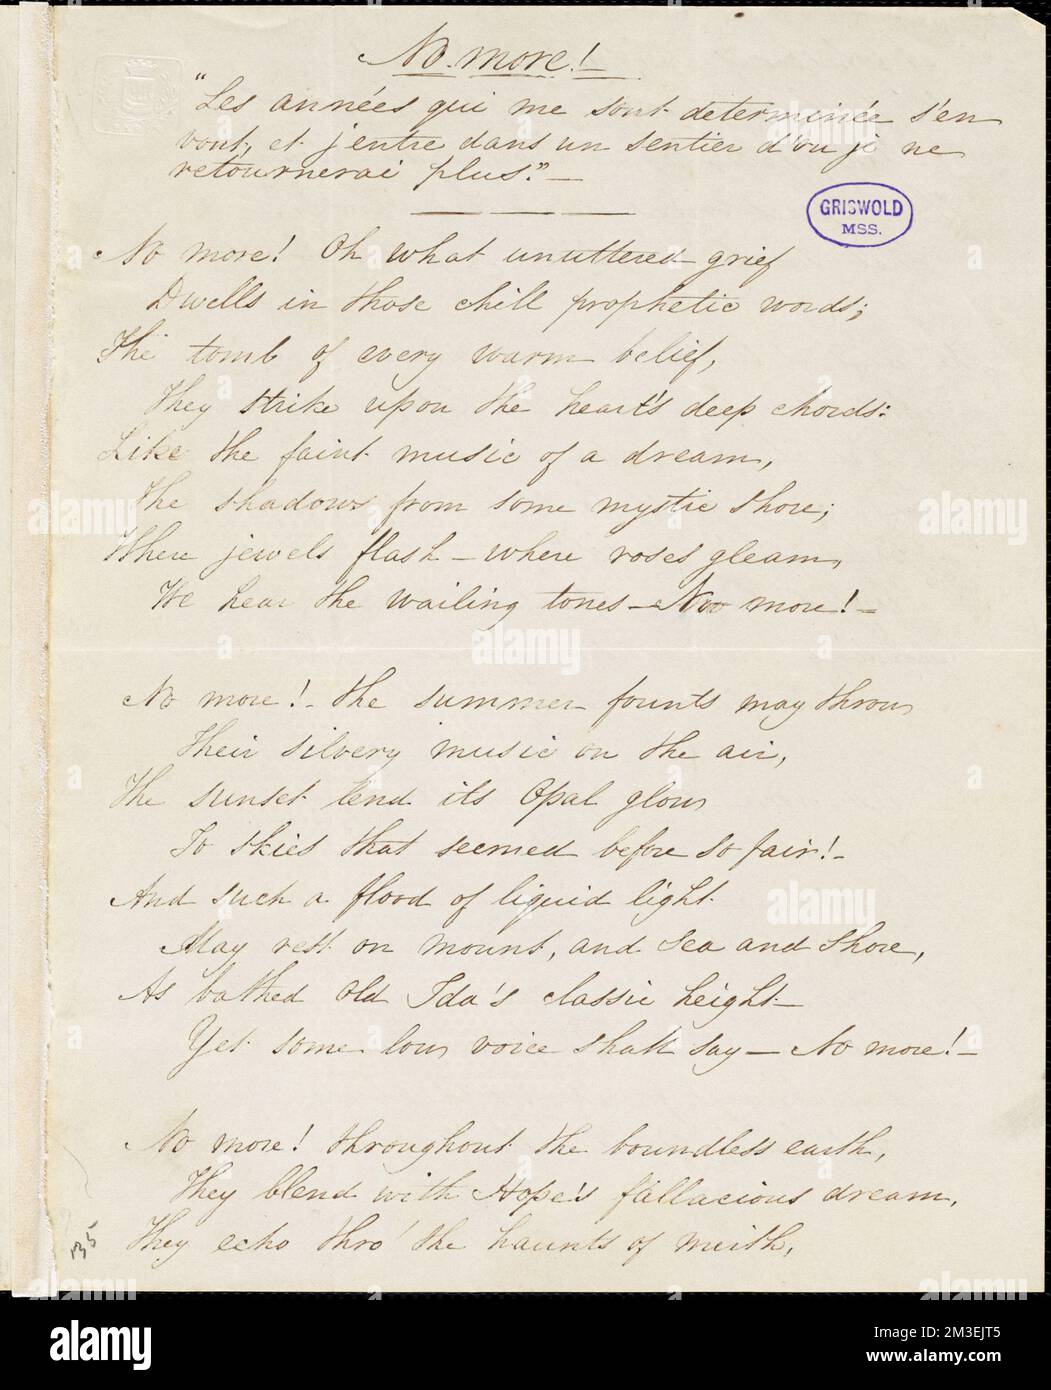 No more!
"Les années qui me sont determinée s'en
vont, et j'entre dans un sentier d'ou je ne
retournerai plus."—
GRISWOLD
MSS.
No more! Oh what unuttered grief
Dwells in those chill prophetic words;
The tomb of every warm belief,
They strike upon the heart's deep chords:
Like the faint music of a dream,
The shadows from some mystic shore;
Where jewels flash – where roses gleam,
We hear the wailing tones – No more! –
No more! – the summer founts may throw
Their silvery music on the air,
The sunset lend its Opal glow
To skies that seemed before so fair! –
And such a flood of liquid light
May rest on mount, and sea and shore,
As bathed Old Ida's classic height –
Yet some low voice shall say – No more! –
No more! throughout the boundless earth,
They blend with Hope's fallacious dream,
They echo thro' the haunts of mirth,
135
alamy
Image ID: 2M3EJT5
www.alamy.com